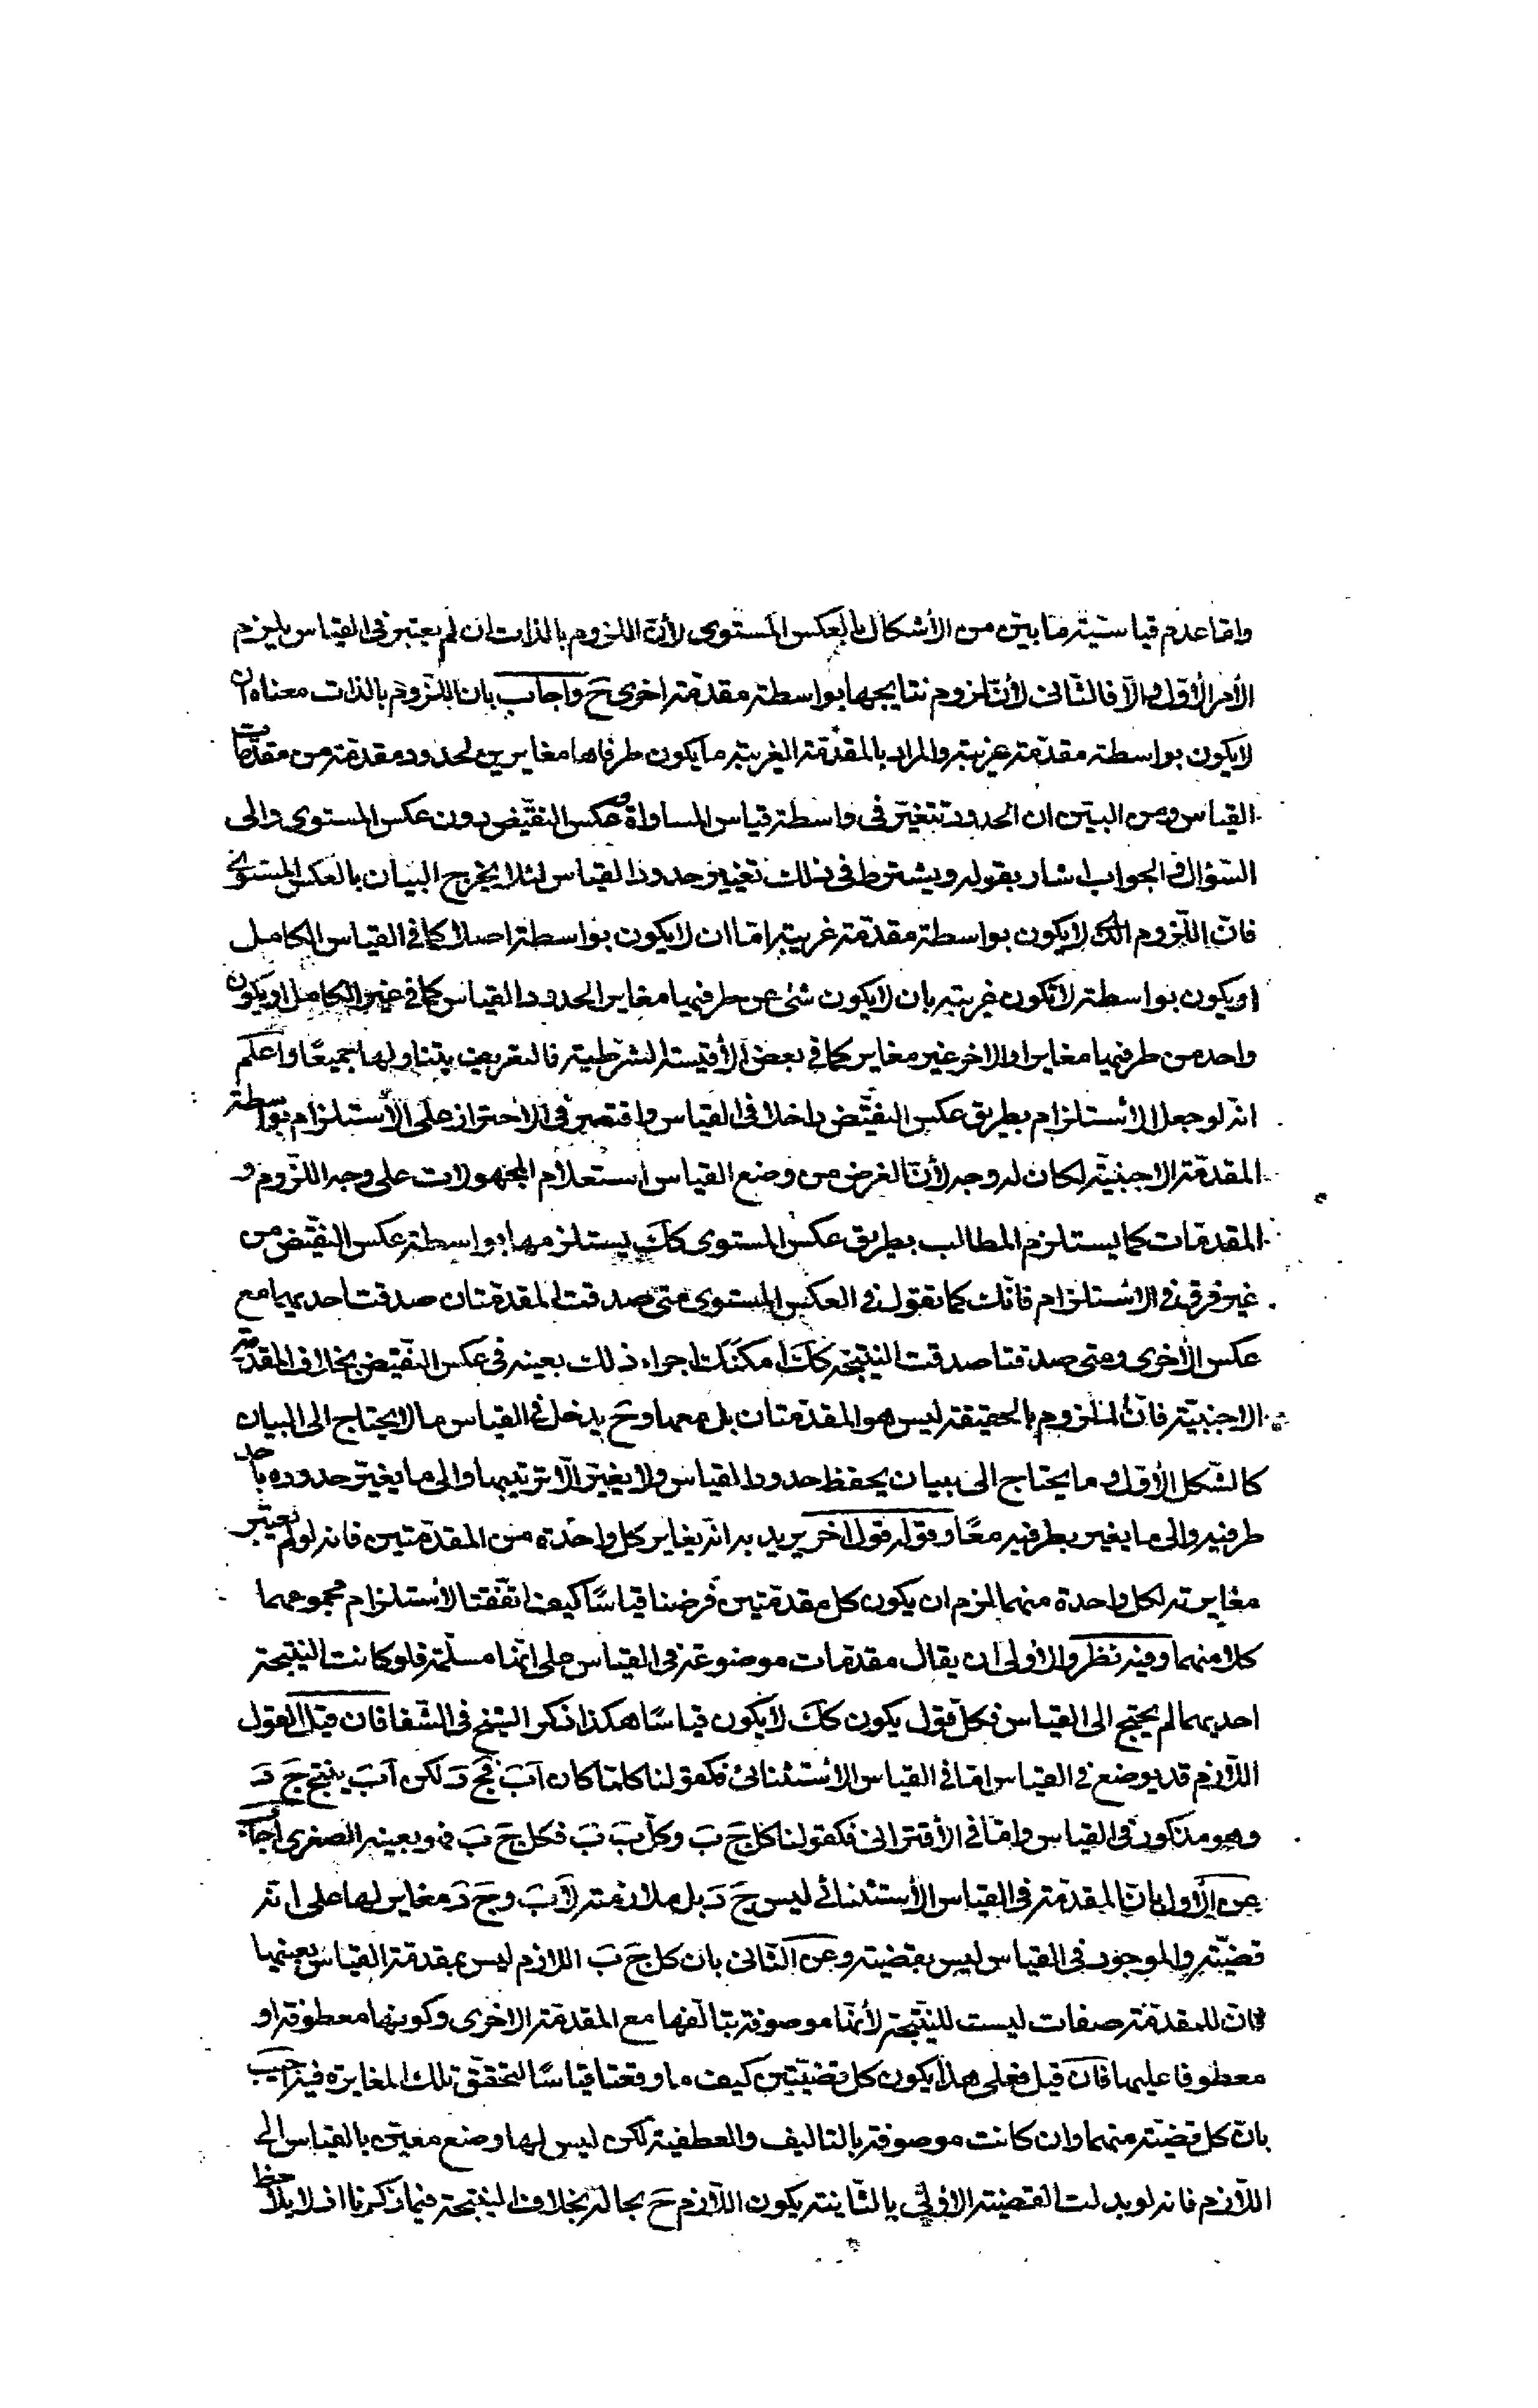 واما عدم قياسيته ما بين من الأشكال بالعكس المستوى لأن اللزوم بالذات ان لم يعتبر فى القياس يلزم
الأمر الأول والا فالثانى لأن لزوم نتايجها بواسطة مقدمة اخرى ح واجاب بان اللزوم بالذات معناه ان
لا يكون بواسطة مقدمة غريبة والمراد بالمقدمة الغريبة ما يكون طرفاها مغايرين لحدود مقدمة من مقدمات
القياس ومن البين ان الحدود تتغير فى واسطة قياس المساواة وعكس النقيض دون عكس المستوى والى
السؤال والجواب اشار بقوله ويشترط فى ذلك تغيير حدود القياس لئلا يخرج البيان بالعكس المستوى
فان اللزوم الذى لا يكون بواسطة مقدمة غريبة اما ان لا يكون بواسطة اصلا كما فى القياس الكامل
او يكون بواسطة لا تكون غريبة بان لا يكون شئ من طرفيها مغاير الحدود القياس كما فى غير الكامل او يكون
واحد من طرفيها مغايرا والاخر غير مغاير كما فى بعض الأقيسة الشرطية فالتعريف يتناولها جميعًا واعلم
انه لو جعل الاستلزام بطريق عكس النقيض داخلا فى القياس واقتصر فى الاحتراز على الأستلزام بواسطة
المقدمة الاجنبية لكان له وجه لأن الغرض من وضع القياس استعلام المجهولات على وجه اللزوم و
المقدمات كما يستلزم المطالب بطريق عكس المستوى كك يستلزمها بواسطة عكس النقيض من
غير فرق فى الاستلزام فانك كما تقول فى العكس المستوى متى صدقت المقدمتان صدقت احديهما مع
عكس الأخرى ومتى صدقتا صدقت النتيجة كك امكنك اجراء ذلك بعينه فى عكس النقيض بخلاف المقدمة
الاجنبية فان الملزوم بالحقيقة ليس هو المقدمتان بل معها وح يدخل فى القياس ما لا يحتاج الى البيان
كالشكل الأول وما يحتاج الى بيان يحفظ حدود القياس ولا يغير الا ترتيبها والى ما يغير حدوده باحد
طرفيه والى ما يغير بطرفيه معًا وقوله قول اخر يريد به انه يغاير كل واحدة من المقدمتين فانه لو لم يعتبر
مغايرته لكل واحدة منهما لزم ان يكون كل مقدمتين فرضنا قياسًا كيف اتفقتا لاستلزام مجموعهما
كلا منهما وفيه نظر والاولى ان يقال مقدمات موضوعة فى القياس على انها مسلمة فلو كانت النتيجة
احديهما لم يحتج الى القياس فكل قول يكون كك لا يكون قياسًا هكذا ذكر الشيخ فى الشفا فان قيل القول
اللازم قد يوضع فى القياس اما فى القياس الاستثنائى فكقولنا كلما كان اَبَ فجَ دَ لكن اَبَ ينتج جَ دَ
وهو مذكور فى القياس واما فى الأقترانى فكقولنا كل جَ بَ وكل بَ بَ فكل جَ بَ فهو بعينه الصغرى اجاب
عن الأول بان المقدمة فى القياس الأستثنائى ليس جَ دَ بل ملازمة لاَبَ وجَ دَ مغاير لها على انه
قضية والموجود فى القياس ليس بقضية وعن الثانى بان كل جَ بَ اللازم ليس بمقدمة القياس بعينها
فان للمقدمة صفات ليست للنتيجة لأنها موصوفة بتالفها مع المقدمة الاخرى وكونها معطوفة او
معطوفا عليها فان قيل فعلى هذا يكون كل قضيتين كيف ما وقعتا قياسًا لتحقق تلك المغايرة فيه اجيب
بان كل قضية منهما وان كانت موصوفة بالتاليف والعطفية لكن ليس لها وضع معين بالقياس الى
اللازم فانه لو بدلت القضية الاولى بالثانية يكون اللازم ح بحاله بخلاف النتيجة فيما ذكرنا اذ لا يلاحظ